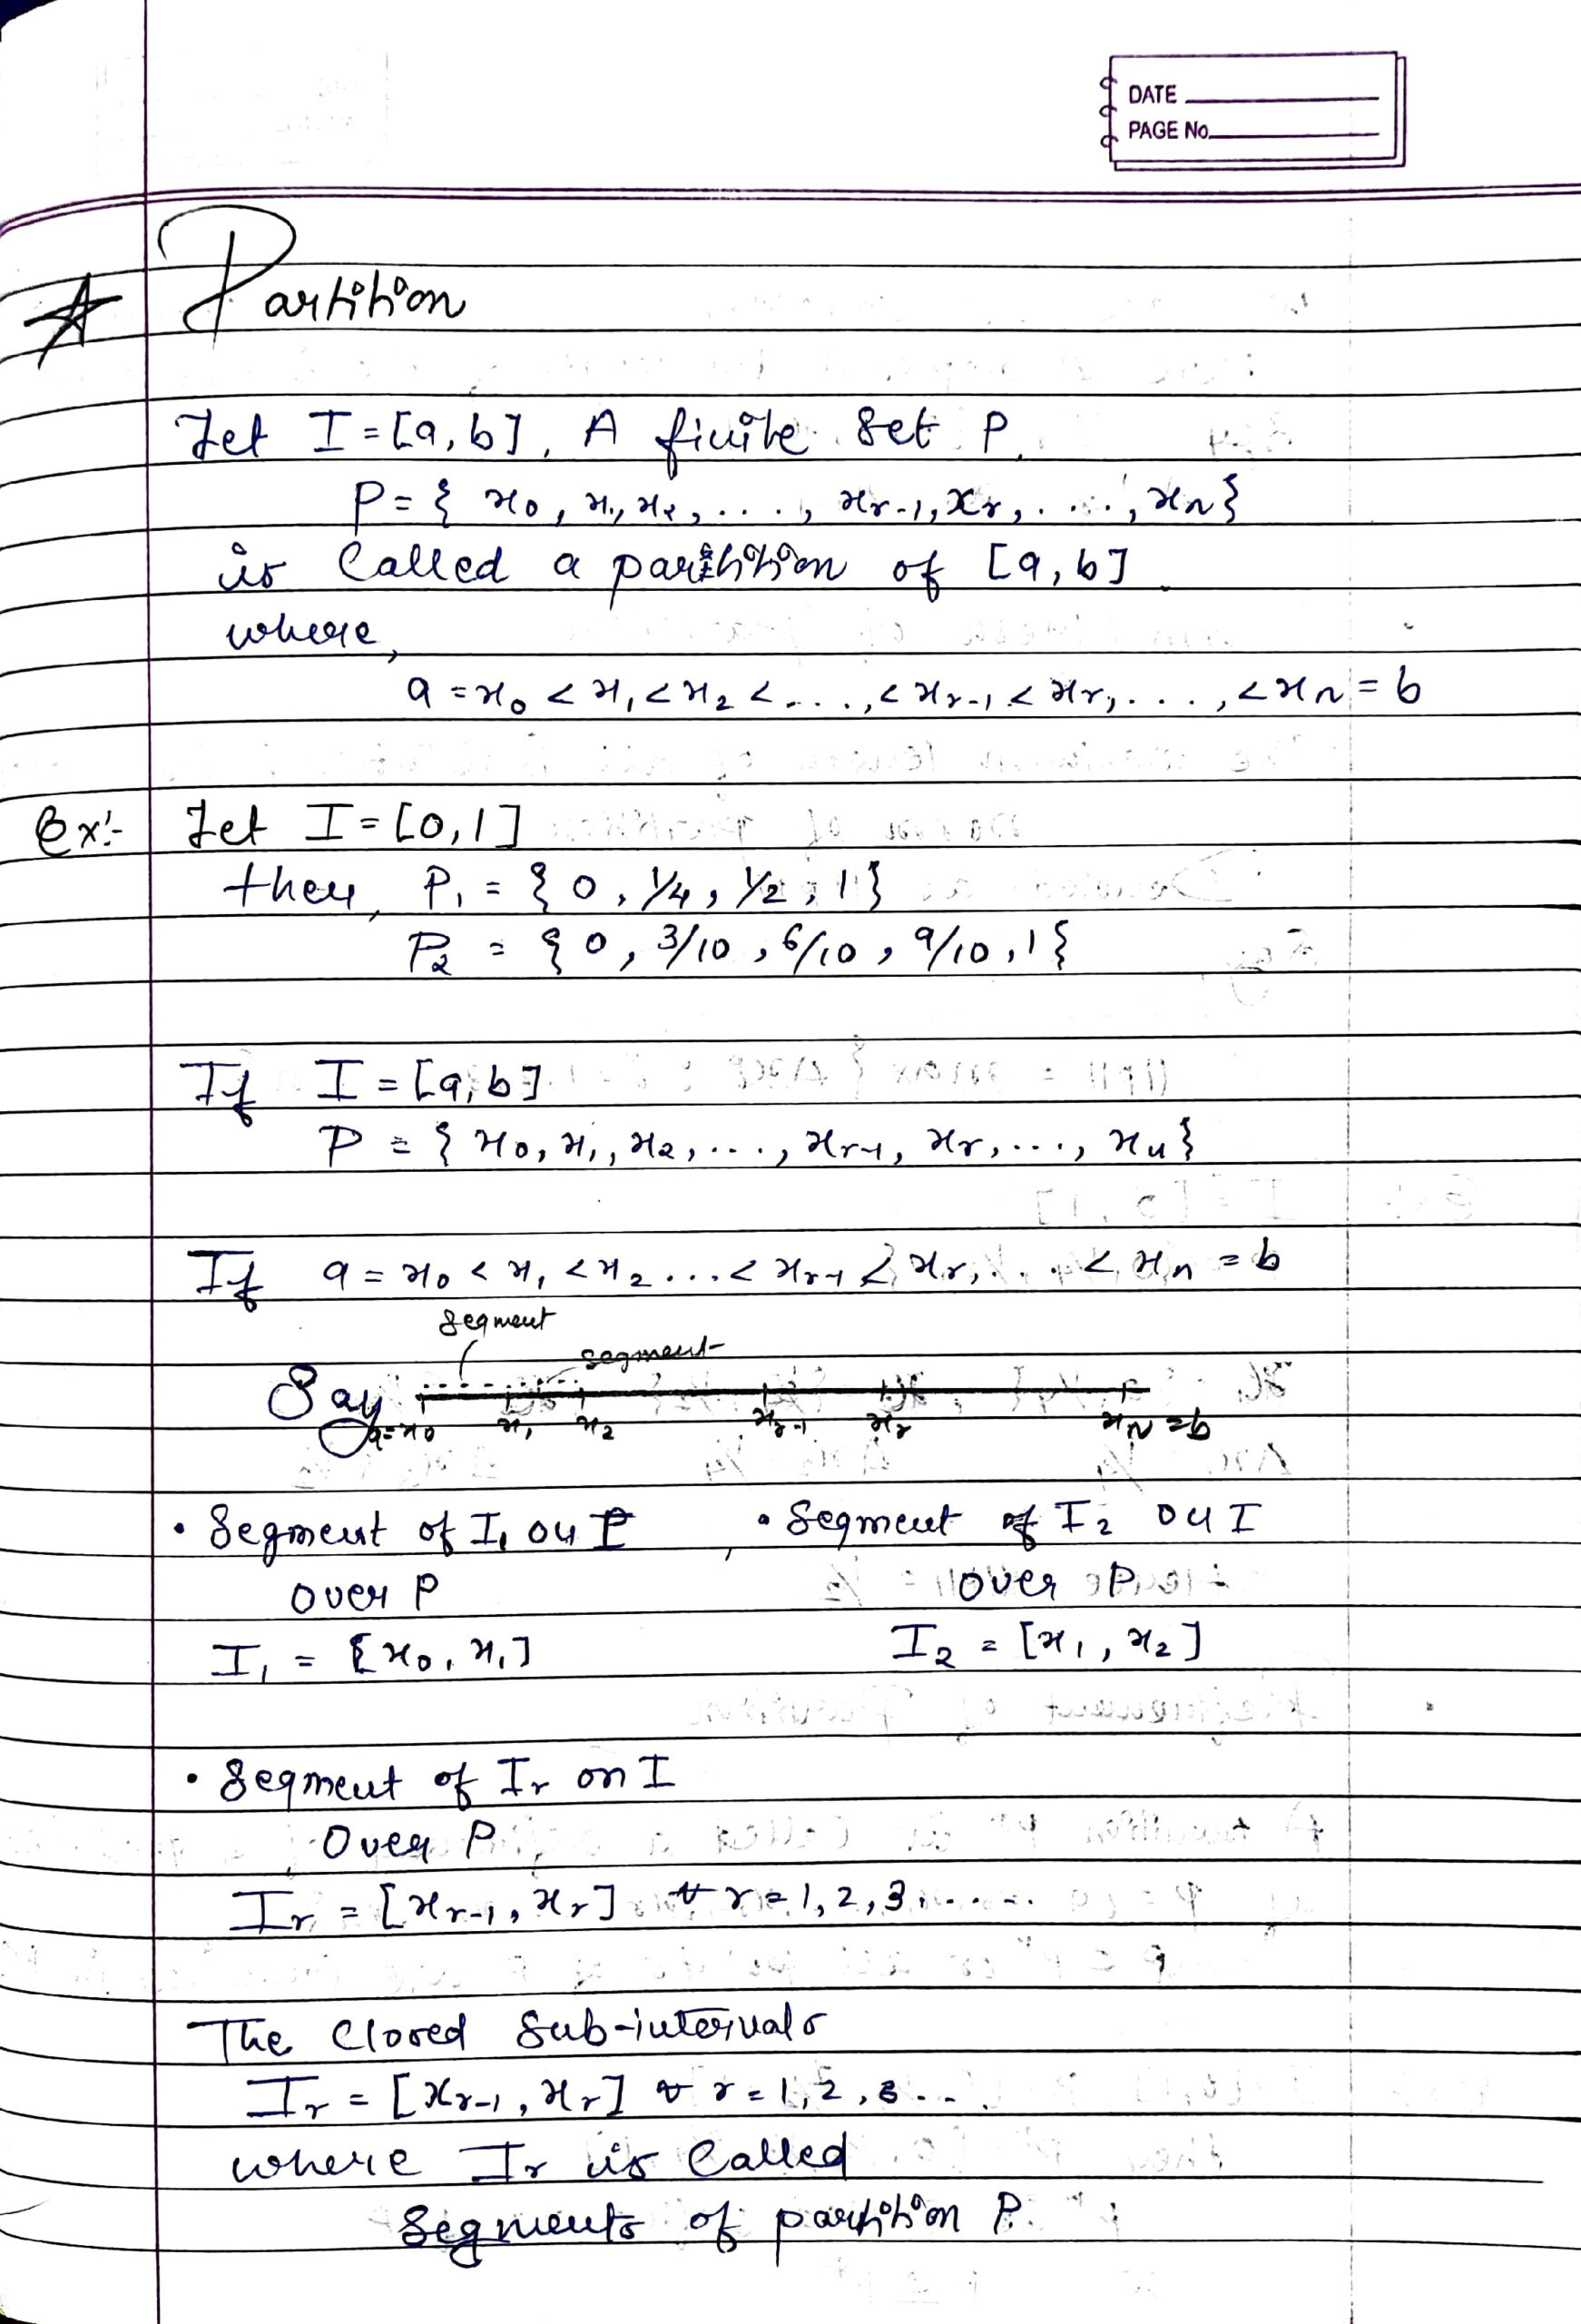 DATE
PAGE No.
☆ Partition
Let I = [a, b], A finite set P,
P = { x₀, x₁, x₂, ...., xᵣ₋₁, xᵣ, ...., xₙ}
is Called a partition of [a, b]
where,
a = x₀ < x₁ < x₂ < ...., < xᵣ₋₁ < xᵣ, ...., < xₙ = b
Ex:- Let I = [0, 1]
then, P₁ = { 0, 1/4, 1/2, 1 }
P₂ = { 0, 3/10, 6/10, 9/10, 1 }
If I = [a, b]
P = { x₀, x₁, x₂, ...., xᵣ₋₁, xᵣ, ...., xₙ}
If a = x₀ < x₁ < x₂ ... < xᵣ₋₁ < xᵣ, ... < xₙ = b
Segment
segment
Say
a=x₀ x₁ x₂ xᵣ₋₁ xᵣ xₙ = b
• Segment of I₁ on I , • Segment of I₂ on I
over P over P
I₁ = [x₀, x₁] I₂ = [x₁, x₂]
• Segment of Iᵣ on I
Over P
Iᵣ = [xᵣ₋₁, xᵣ] ∀ r = 1, 2, 3, .....
The Closed Sub-intervals
Iᵣ = [xᵣ₋₁, xᵣ] ∀ r = 1, 2, 3 ...
where Iᵣ is Called
Segments of partition P.